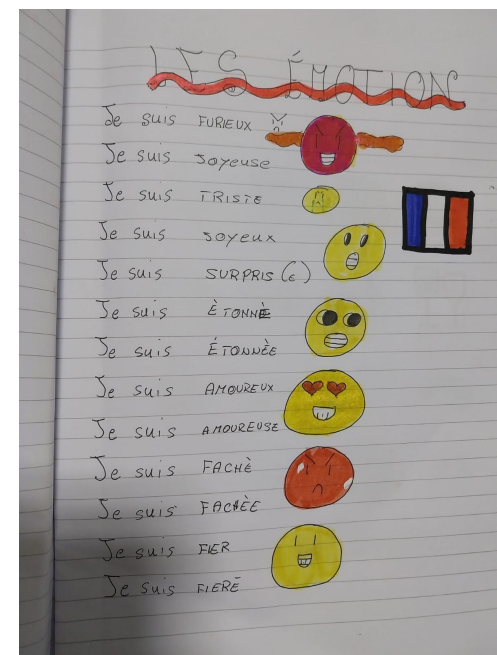 LES ÉMOTION
Je suis FURIEUX
Je suis JOYEUSE
Je suis TRISTE
Je suis JOYEUX
Je suis SURPRIS (E)
Je suis ÈTONNÈ
Je suis ÉTONNÈE
Je suis AMOUREUX
Je suis AMOUREUSE
Je suis FACHÈ
Je suis FACHÈE
Je suis FIER
Je suis FIERE